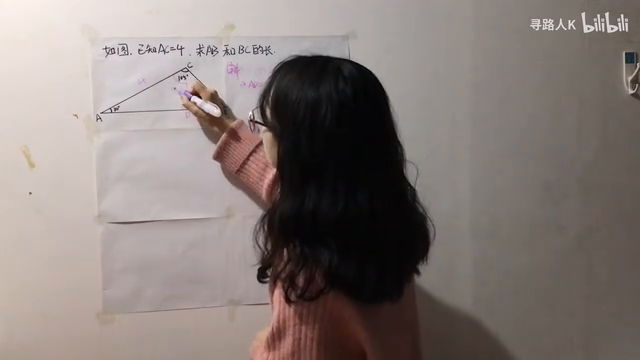 寻路人K bilibili
如图,已知AC=4,求AB和BC的长.
C
105°
A
30°